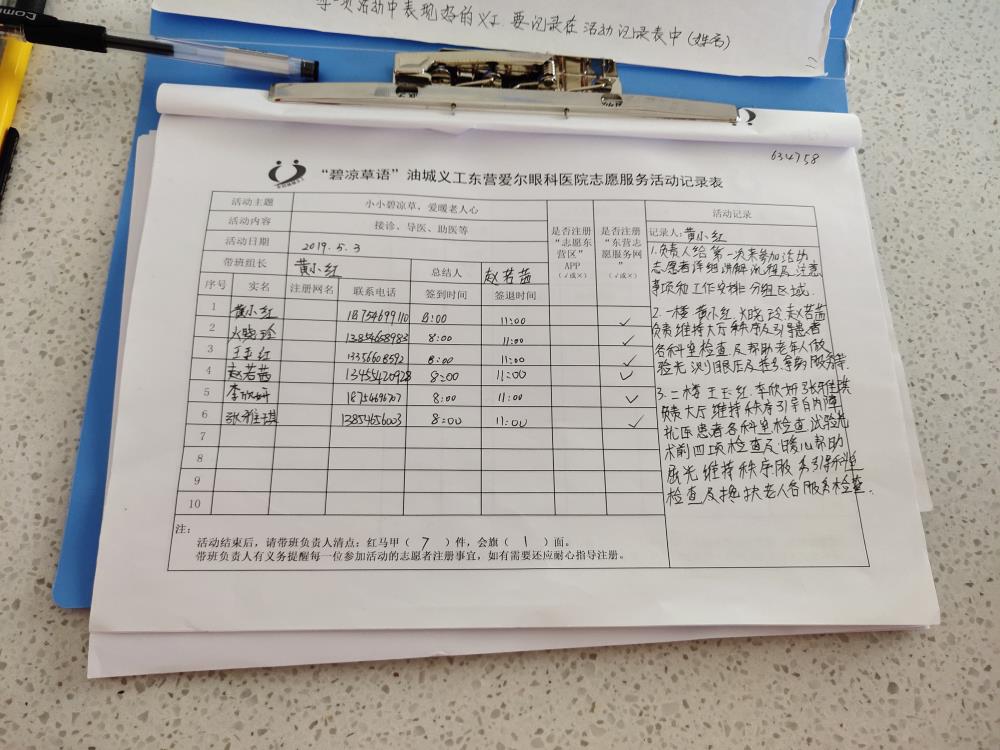 每一项活动中表现好的义工 要记录在活动记录表中(姓名)
634758
“碧凉草语”油城义工东营爱尔眼科医院志愿服务活动记录表
活动主题 小小碧凉草,爱暖老人心
活动内容 接诊、导医、助医等
活动日期 2019.5.3
带班组长 黄小红 总结人 赵若茜
是否注册“志愿东营区”APP(√或×)
是否注册“东营志愿服务网”(√或×)
序号 实名 注册网名 联系电话 签到时间 签退时间
1 黄小红 18754699110 8:00 11:00 ✓
2 火晓玲 13854658983 8:00 11:00 ✓
3 王玉红 13356608592 8:00 11:00 ✓
4 赵若茜 13455420928 8:00 11:00 ✓
5 李欣妍 8:00 11:00 ✓
6 张雅琪 13854656003 8:00 11:00 ✓
7
8
9
10
活动记录
记录人:黄小红
1.负责人给第一次来参加活动
志愿者详细讲解流程及注意
事项和工作安排分组区域.
2.一楼 黄小红 火晓玲 赵若茜
负责维持大厅秩序及引导患者
各科室检查及帮助老年人做
验光 测眼压及
3.二楼王玉红.李欣妍 张雅琪
负责大厅维持秩序引导白内障
患者各科室检查试验光
术前四项检查及暖心帮助
验光维持秩序服务引导科室
检查及搀扶老人各服务检查.
注:
活动结束后,请带班负责人清点:红马甲( 7 )件,会旗( 1 )面。
带班负责人有义务提醒每一位参加活动的志愿者注册事宜,如有需要还应耐心指导注册。